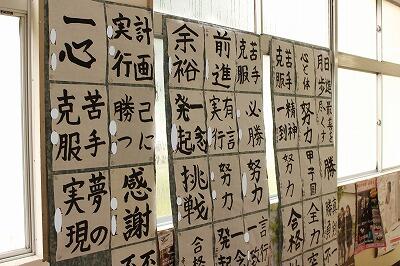 一心
計画
実行
苦手
克服
己に
勝つ
夢の
実現
感謝
余裕
前進
苦手
克服
一念
発起
有言
実行
必勝
挑戦
努力
努力
合格
苦手
克服
心と体
日進
月歩
精神
一到
努力
最善を
尽くす
努力
甲子園
合格
全力